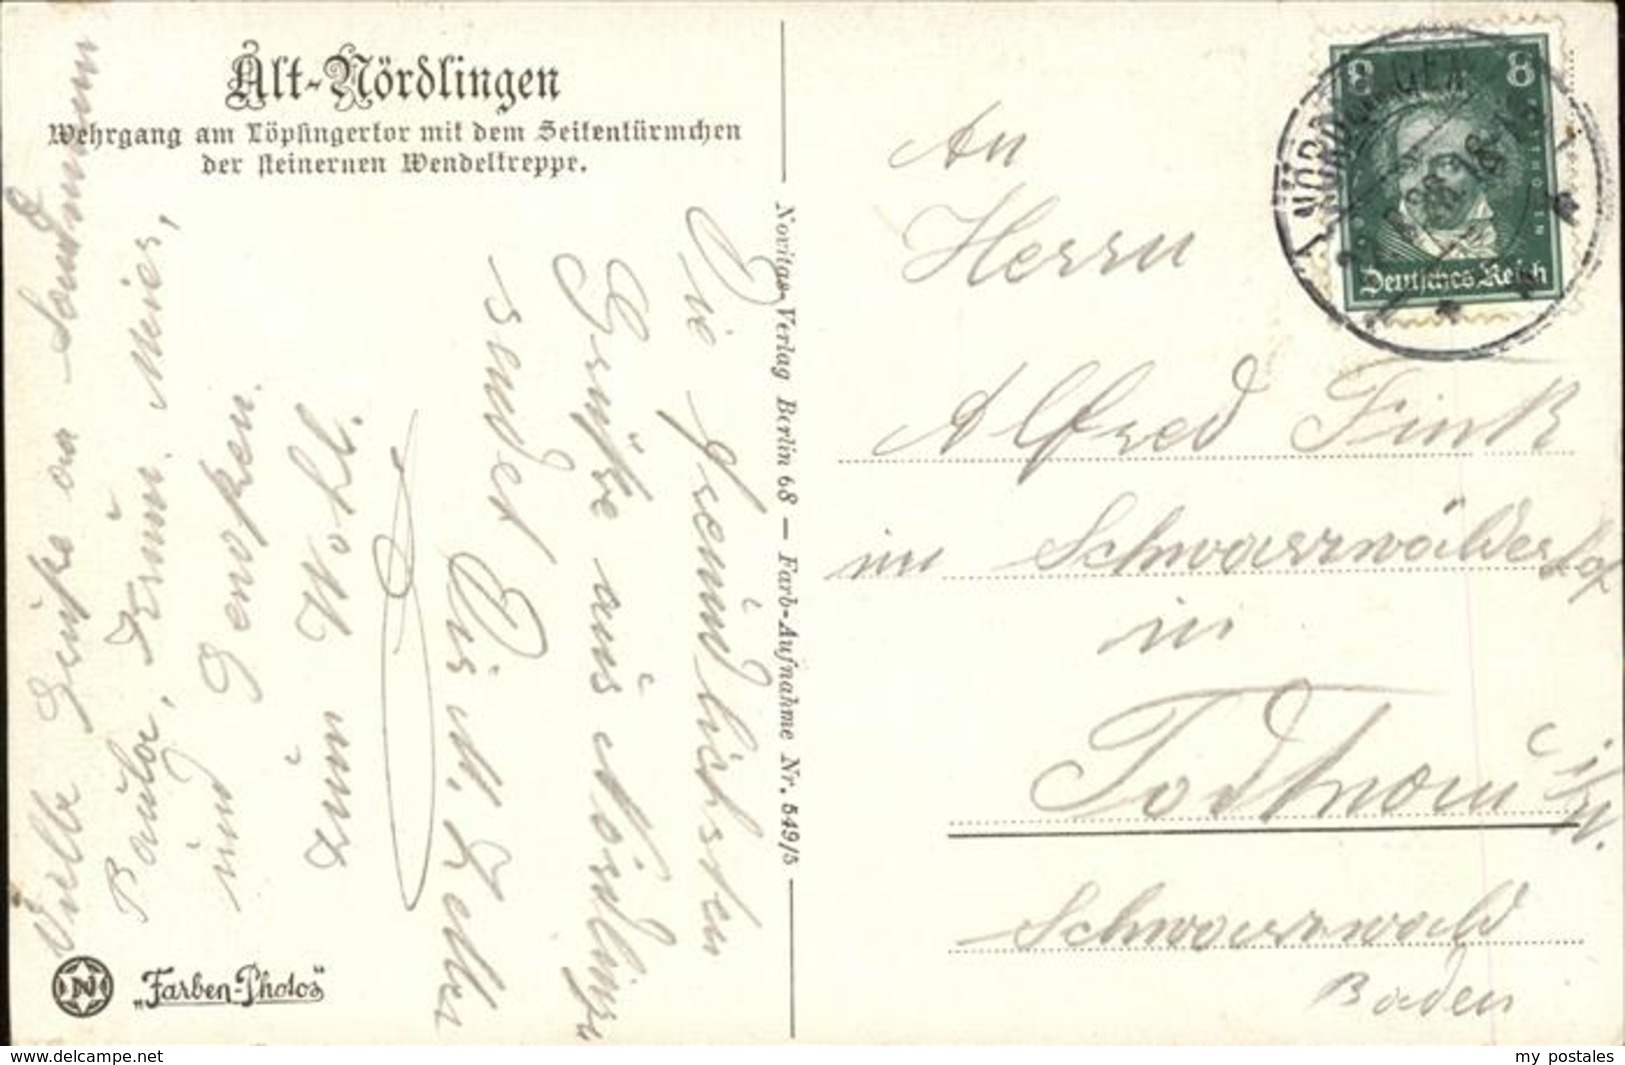 Alt-Nördlingen
Wehrgang am Löpsingertor mit dem Seitentürmchen
der steinernen Wendeltreppe.
Die freundlichsten
Grüße aus Nördlingen
sendet Dir M. Zeller
Zum Wohl.
und
Paula, Meier,
Viele Grüße an
Novitas-Verlag Berlin 68 — Farb-Aufnahme Nr. 549/5
N
„Farben-Photos"
8 8
Deutsches Reich
NÖRDLINGEN
An
Herrn
Alfred Fink
im Schwarzwälder Hof
in
Todtnau i/W.
Schwarzwald
Baden
www.delcampe.net
my postales